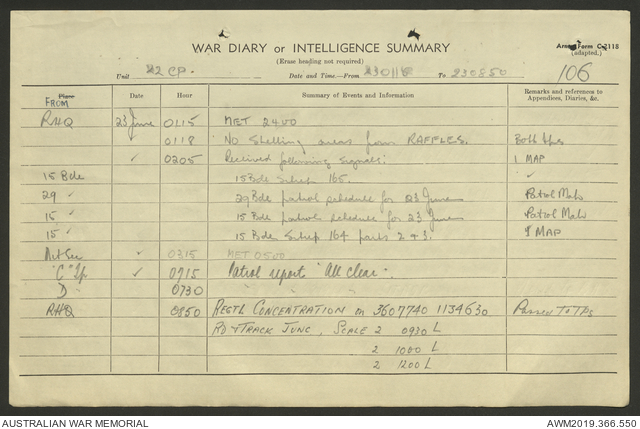 WAR DIARY or INTELLIGENCE SUMMARY
Army Form C 2118
(adapted.)
(Erase heading not required)
Unit 22 CP. Date and Time.—From 230115 To 230850 106
Place Date Hour Summary of Events and Information Remarks and references to Appendices, Diaries, &c.
FROM
RHQ 23 June 0115 MET 2400
0118 No Shelling areas from RAFFLES. Both
✓ 0205 Received following signals: 1 MAP
15 Bde 15 Bde Sitrep 165. ✓
29 " 29 Bde patrol schedule for 23 June Patrol
15 " 15 Bde patrol schedule for 23 June Patrol
15 " 15 Bde Sitrep 164 parts 2 + 3. 1 MAP
✓ 0315 MET 0300
"C" Tp ✓ 0715 Patrol report "All clear".
D " 0730 " " "
RHQ 0850 REGTL CONCENTRATION on 3607740 1134630 Passed To TPs
RD + TRACK JUNC, SCALE 2 0930 L
2 1000 L
2 1200 L
AUSTRALIAN WAR MEMORIAL AWM2019.366.550